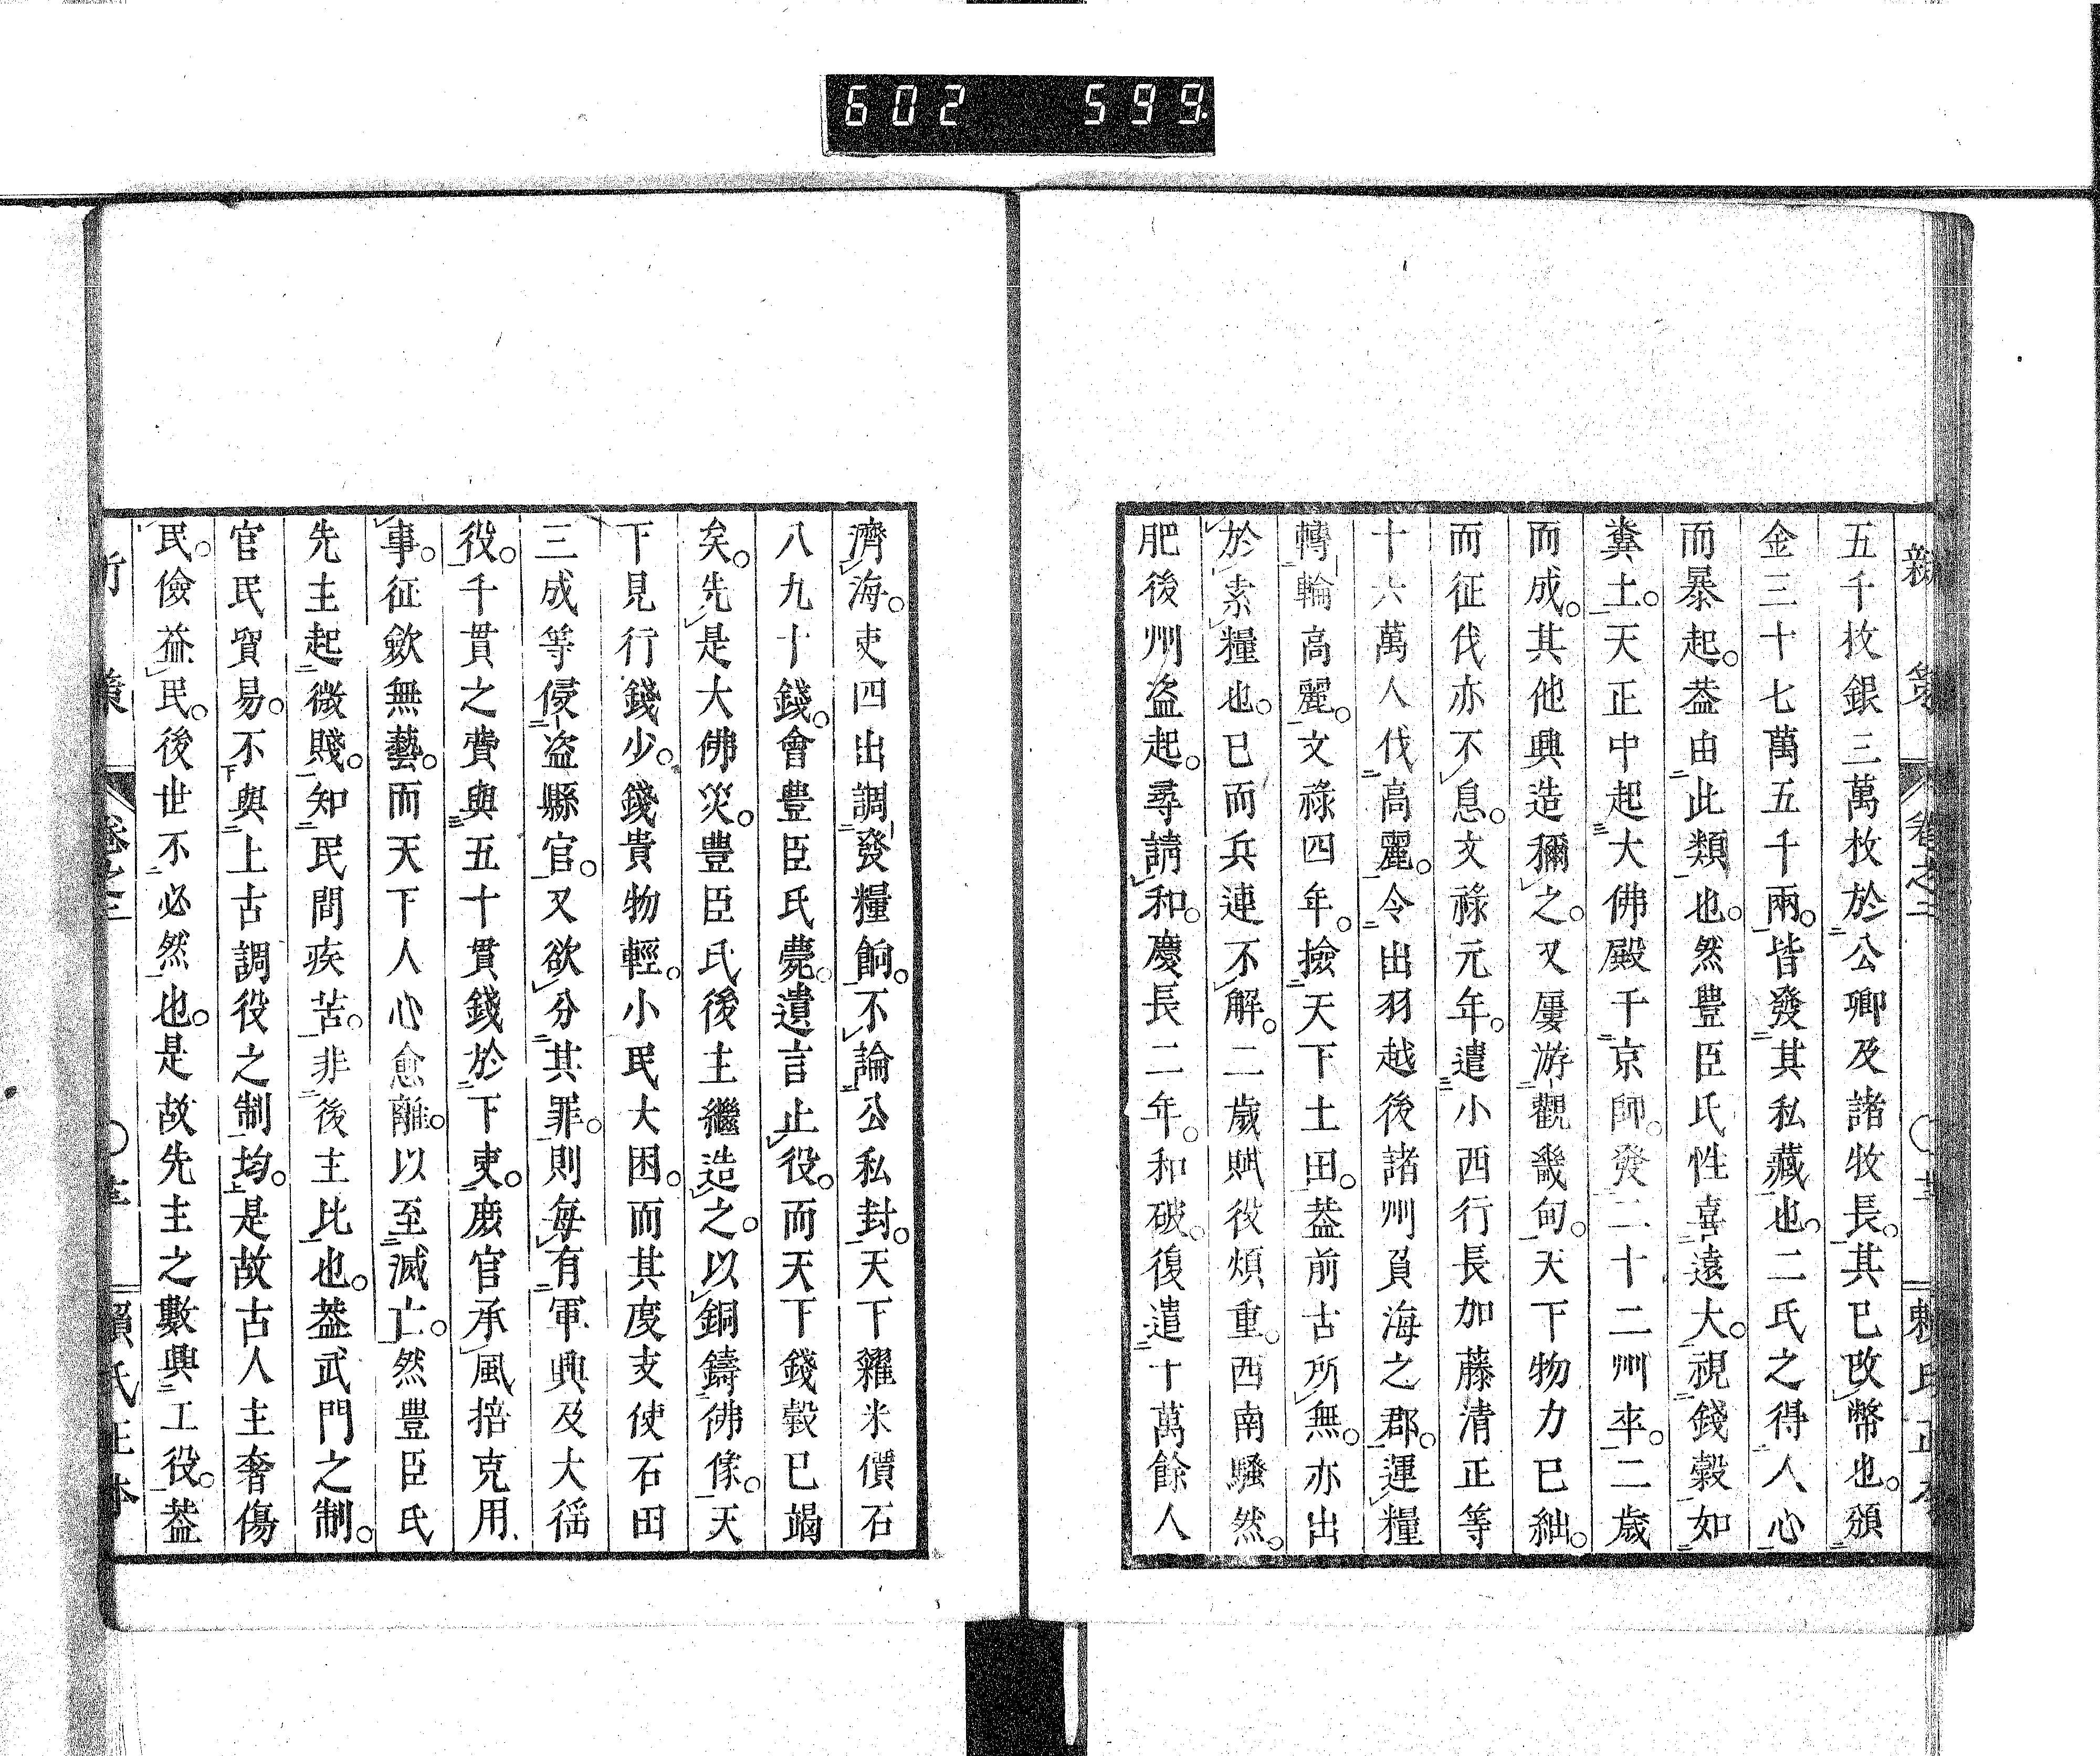 602 599
新策 卷之二 賴氏正本
五千枚銀三萬枚於公卿及諸牧長。其已改幣也。頒
金三十七萬五千兩。皆發其私藏也。二氏之得人心
而暴起。葢由此類也。然豊臣氏性喜遠大。視錢穀如
糞土。天正中起大佛殿千京師。發二十二州卒。二歲
而成。其他興造稱之。又屢游觀畿甸。天下物力已絀。
而征伐亦不息。文祿元年。遣小西行長加藤清正等
十六萬人伐高麗。令出羽越後諸州負海之郡。運糧
轉輪高麗。文祿四年。撿天下土田。葢前古所無。亦出
於索糧也。已而兵連不解。二歲賦役煩重。西南騷然。
肥後州盜起。尋請和。慶長二年。和破。復遣十萬餘人
濟海。吏四出調發糧餉。不論公私封。天下糴米價石
八九十錢。會豊臣氏薨。遺言止役。而天下錢穀已竭
矣。先是大佛災。豊臣氏後主繼造之。以銅鑄佛像。天
下見行錢少。錢貴物輕。小民大困。而其度支使石田
三成等侵盜縣官。又欲分其罪。則每有軍興及大徭
役。千貫之費與五十貫錢於下吏。庶官承風掊克用
事。征歛無藝。而天下人心愈離。以至滅亡。然豊臣氏
先主起微賤。知民間疾苦。非後主比也。葢武門之制。
官民貿易。不與上古調役之制均。是故古人主奢傷
民。儉益民。後世不必然也。是故先主之數興工役。葢
策 卷之二 賴氏正本